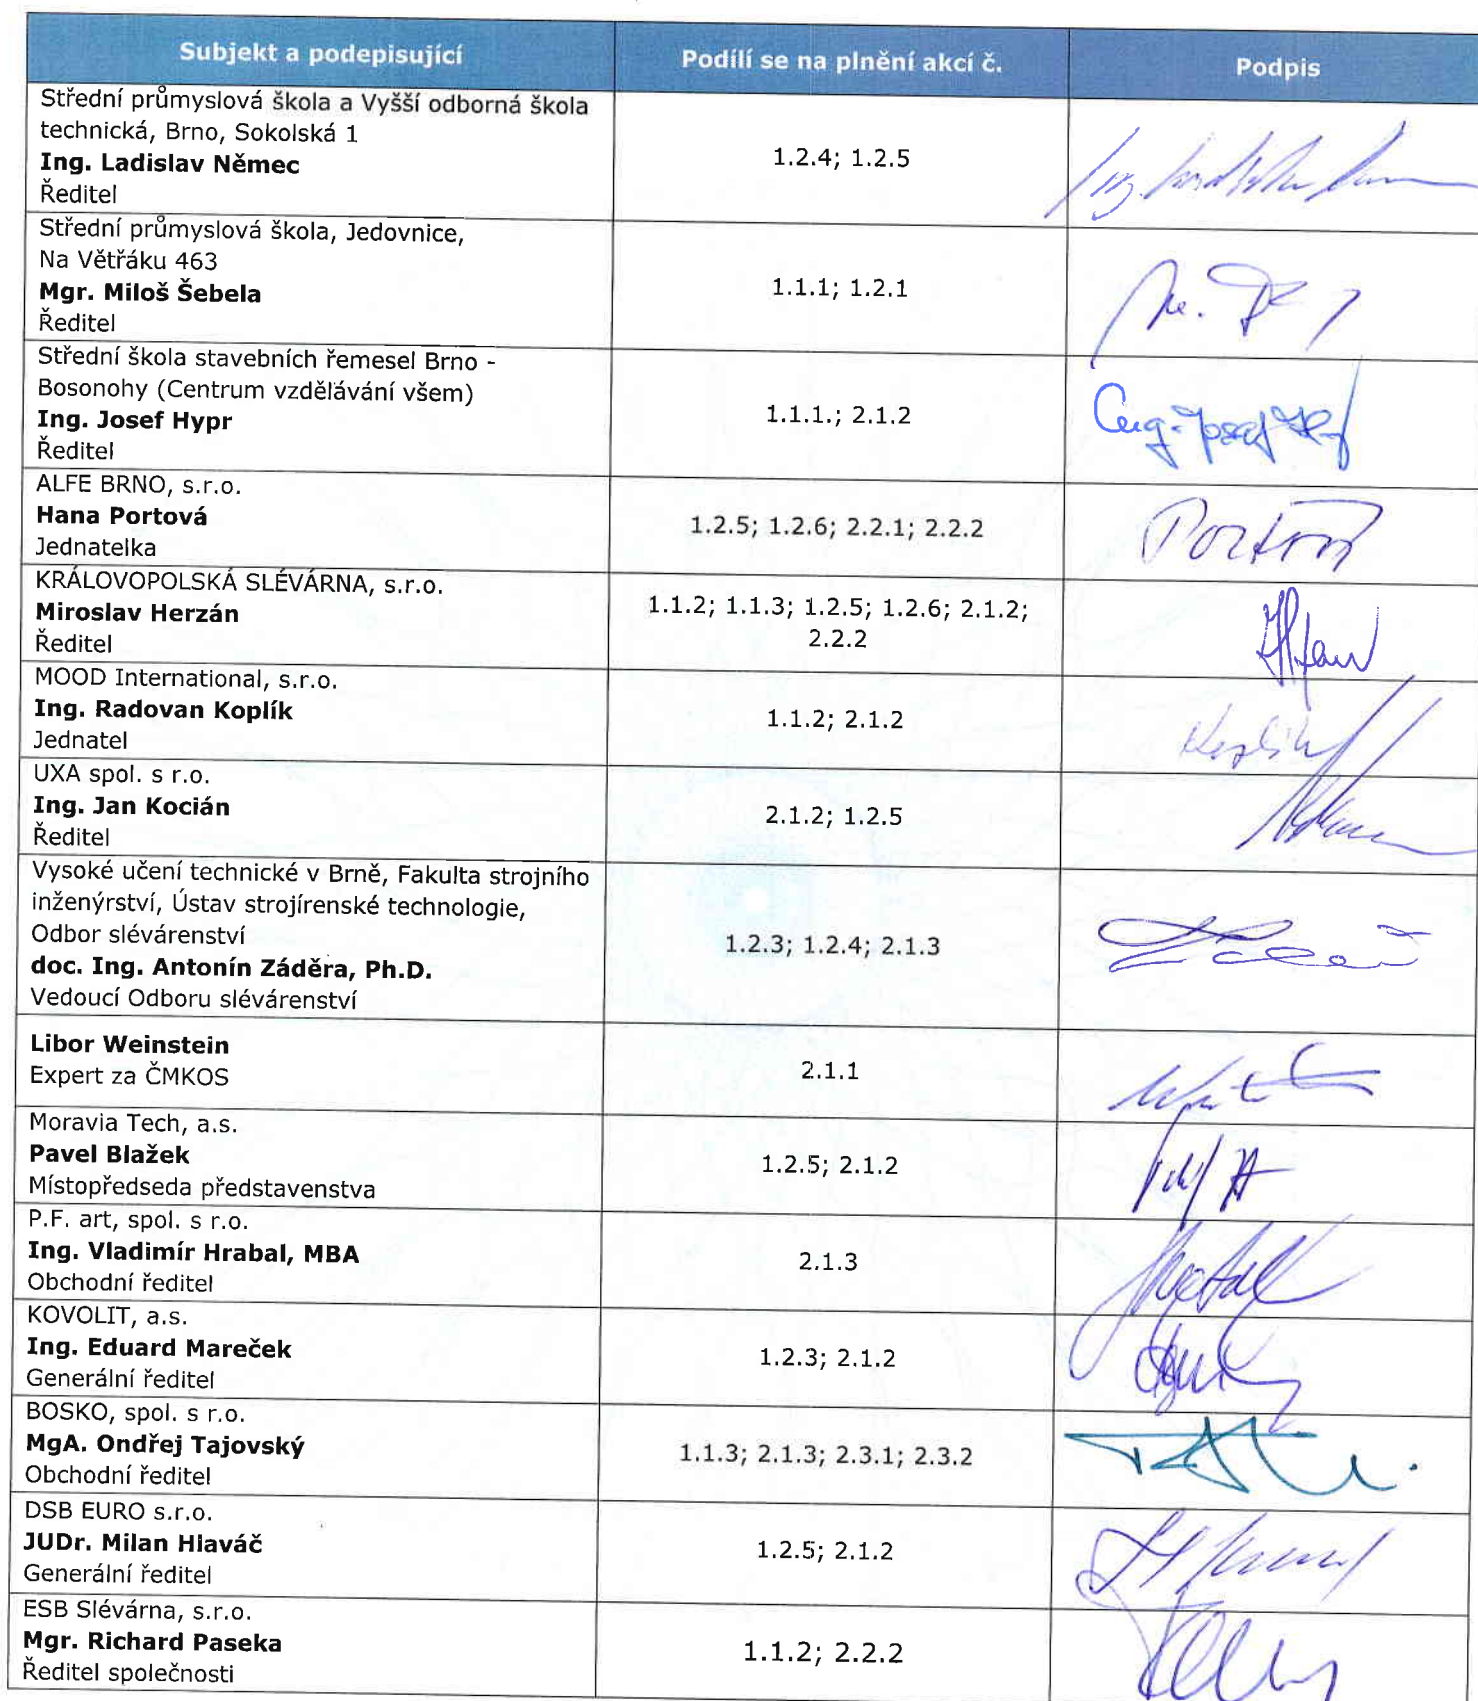 Subjekt a podepisující
Podílí se na plnění akcí č.
Podpis
Střední průmyslová škola a Vyšší odborná škola
technická, Brno, Sokolská 1
Ing. Ladislav Němec
Ředitel
1.2.4; 1.2.5
Střední průmyslová škola, Jedovnice,
Na Větřáku 463
Mgr. Miloš Šebela
Ředitel
1.1.1; 1.2.1
Střední škola stavebních řemesel Brno -
Bosonohy (Centrum vzdělávání všem)
Ing. Josef Hypr
Ředitel
1.1.1.; 2.1.2
ALFE BRNO, s.r.o.
Hana Portová
Jednatelka
1.2.5; 1.2.6; 2.2.1; 2.2.2
Portová
KRÁLOVOPOLSKÁ SLÉVÁRNA, s.r.o.
Miroslav Herzán
Ředitel
1.1.2; 1.1.3; 1.2.5; 1.2.6; 2.1.2;
2.2.2
MOOD International, s.r.o.
Ing. Radovan Koplík
Jednatel
1.1.2; 2.1.2
UXA spol. s r.o.
Ing. Jan Kocián
Ředitel
2.1.2; 1.2.5
Vysoké učení technické v Brně, Fakulta strojního
inženýrství, Ústav strojírenské technologie,
Odbor slévárenství
doc. Ing. Antonín Záděra, Ph.D.
Vedoucí Odboru slévárenství
1.2.3; 1.2.4; 2.1.3
Libor Weinstein
Expert za ČMKOS
2.1.1
Moravia Tech, a.s.
Pavel Blažek
Místopředseda představenstva
1.2.5; 2.1.2
P.F. art, spol. s r.o.
Ing. Vladimír Hrabal, MBA
Obchodní ředitel
2.1.3
KOVOLIT, a.s.
Ing. Eduard Mareček
Generální ředitel
1.2.3; 2.1.2
BOSKO, spol. s r.o.
MgA. Ondřej Tajovský
Obchodní ředitel
1.1.3; 2.1.3; 2.3.1; 2.3.2
DSB EURO s.r.o.
JUDr. Milan Hlaváč
Generální ředitel
1.2.5; 2.1.2
ESB Slévárna, s.r.o.
Mgr. Richard Paseka
Ředitel společnosti
1.1.2; 2.2.2